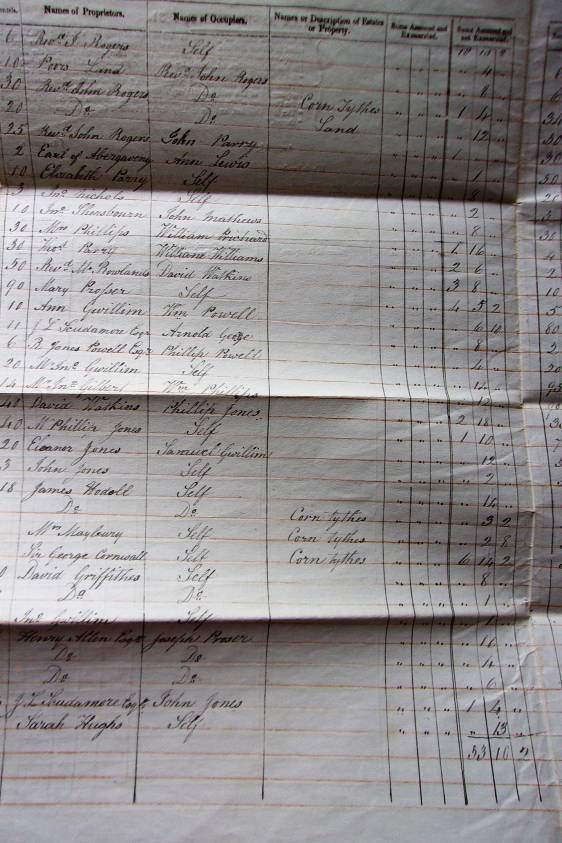 Names of Proprietors. Names of Occupiers. Names or Description of Estates or Property. Sums Assessed and Exonerated. Sums Assessed and not Exonerated.
6 Revd. J. Rogers Self
10 Poors Land Revd. John Rogers " " " " 4 "
30 Revd. John Rogers Do. Corn Tythes " " " " 8 "
20 Do. Do. Land " " " 1 4 "
25 Revd. John Rogers John Parry " " " " 12 "
2 Earl of Abergaveny Ann Lewis " " " 1
10 Elizabeth Parry Self " " " " 1
3 Jno. Nichols Self " " " " 8
10 Jno. John Mathews " " " " 2 "
30 Mrs Phillips William Prichard " " " " 8 "
30 Thos. Parry William Williams " " " 1 16 "
50 Revd. Mr. Rowlands David Watkins " " " 2 6 "
90 Mary Prosser Self " " " 3 8 "
10 Ann Gwillim Wm Powell " " " 4 5 2
11 J L Scudamore Esqr Arnold " " " " 6 10
6 R Jones Powell Esqr Phillip Powell " " " " 8 "
20 Mr. Jno. Gwillim Self " " " " 4 "
14 Mr. Jno. Gilbert Wm. Phillips " " " "
48 David Watkins Phillip Jones " " " " 12 "
40 Mr Phillip Jones Self " " " 2 18 "
20 Eleanor Jones Samuel Gwillim " " " 1 10 "
3 John Jones Self " " " " 12 "
18 James Self " " " " 2 "
Do. Do. Corn tythes " " " " 14 "
Mrs Maybury Self Corn tythes " " " " 3 2
Sir George Cornwall Self Corn tythes " " " " 2 8
David Griffithes Self " " " 6 14 2
Do. Do. " " " " 8 "
Jno. Gwillim Self " " " " 1 "
Henry Allen Esqr. Joseph Proser
Do. Do. " " " " 14 "
Do. Do. " " " " 4 "
J. L. Scudamore Esqr. John Jones " " " 1 4 "
Sarah Hughs Self " " " " 13 "
53 16 2